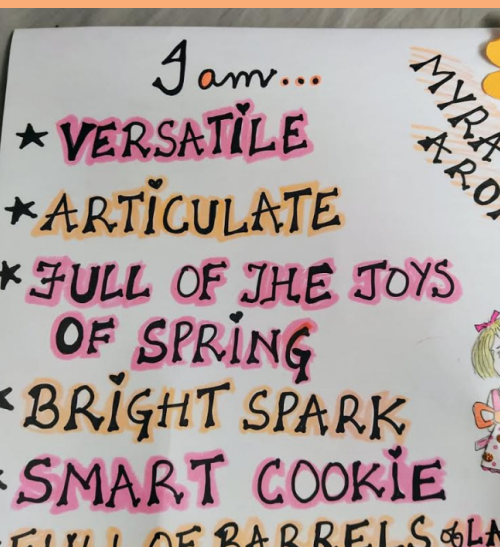 I am...
MYRA
★ VERSATILE
★ ARTICULATE
★ FULL OF THE JOYS
OF SPRING
BRIGHT SPARK
SMART COOKIE
FULL OF BARRELS &